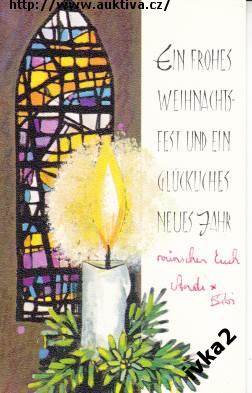 http://www.auktiva.cz/
EIN FROHES
WEIHNACHTS-
FEST UND EIN
GLÜCKLICHES
NEUES JAHR
wünschen Euch
Andi +
Bibi
ivka2